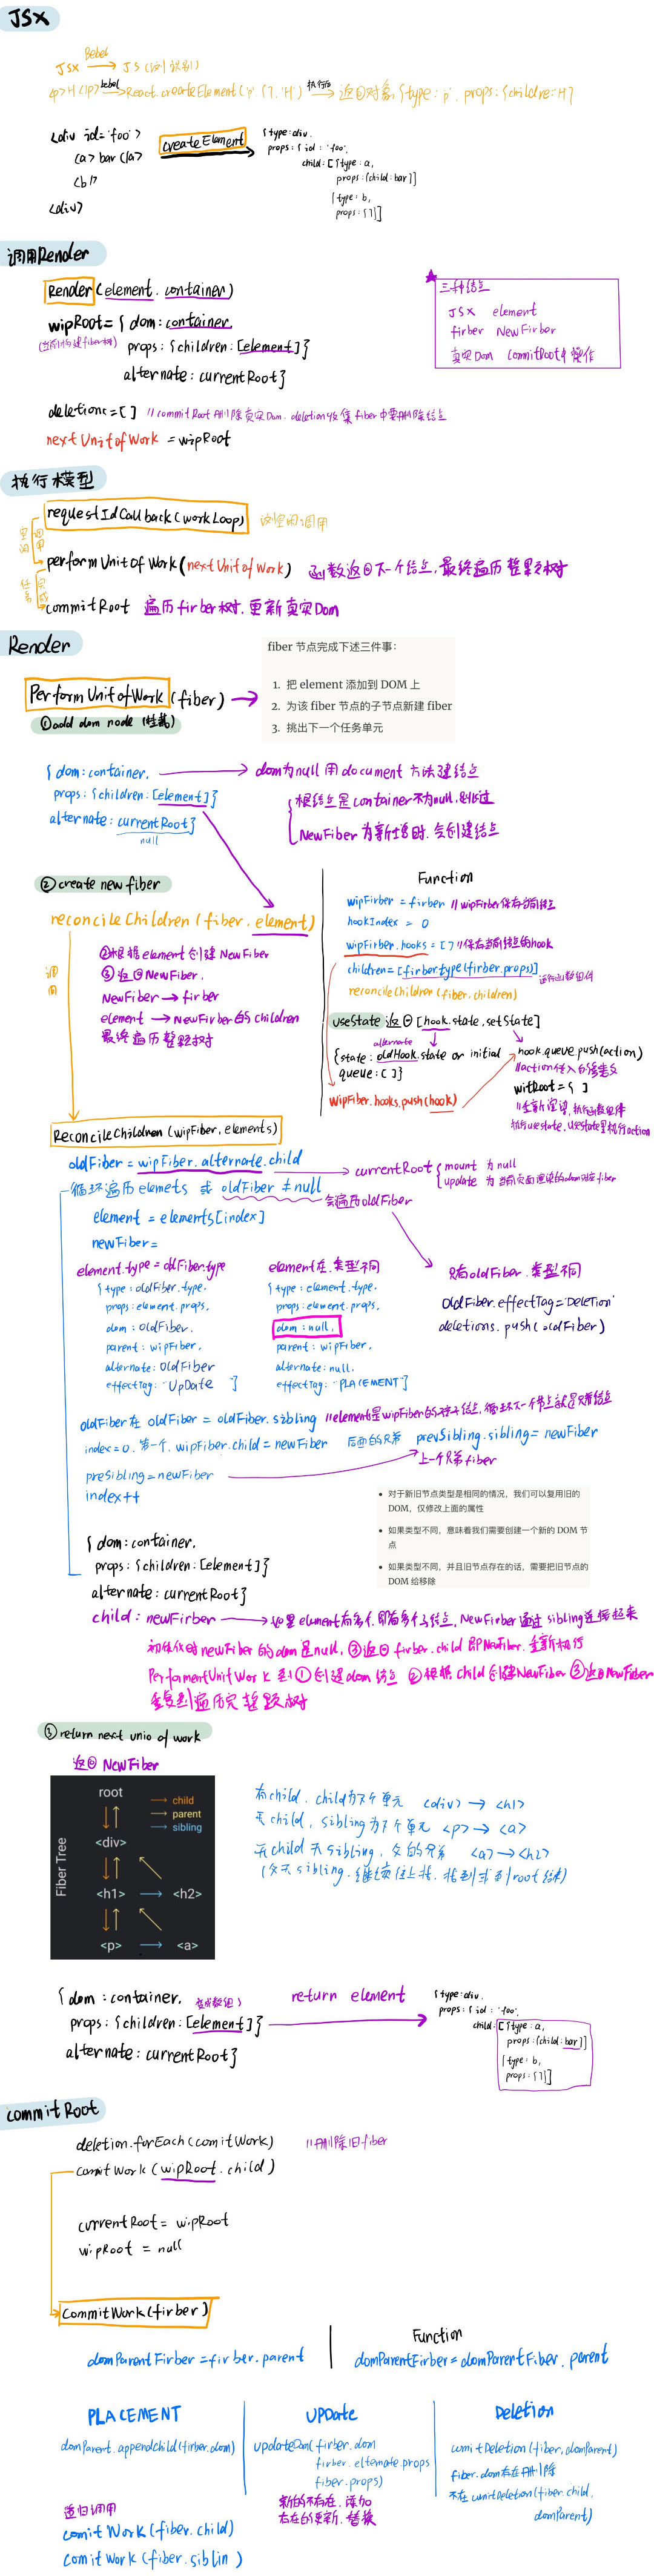 JSX
Bebel
JSX → JS (识别)
<p>H</p> bebel → React.createElement('p', {}, 'H') 执行后 → 返回对象 {type: p, props: {childre: H}
<div id='foo'>
<a> bar </a>
<b />
<div>
createElement
{type: div,
props: { id: 'foo',
child: [ {type: a,
props: {child: bar}]
{type: b,
props: {}]
调用Render
Render (element, container)
wipRoot = { dom: container,
(当前构建fiber树)
props: {children: [element]}
alternate: currentRoot}
三种结点
JSX element
firber NewFirber
真实Dom CommitRoot中操作
deletions = [] // commitRoot 删除真实Dom. deletion收集fiber中要删除结点
next UnitofWork = wipRoot
执行模型
requestIdCallback(workLoop) 空闲调用
performUnitOfWork(next Unit of Work) 函数返回下一个结点, 最终遍历整颗树
commitRoot 遍历firber树, 更新真实Dom
Render
PerformUnitofWork (fiber)
① add dom node
fiber 节点完成下述三件事:
1. 把 element 添加到 DOM 上
2. 为该 fiber 节点的子节点新建 fiber
3. 挑出下一个任务单元
{ dom: container, → dom为null 用document 方法建结点
props: {children: [element]}
alternate: currentRoot}
null
根结点是container不为null, 跳过
NewFiber 为新增时, 会创建结点
② create new fiber
reconcileChildren (fiber, element)
调用
②根据element创建NewFiber
③返回NewFiber.
NewFiber → firber
element → NewFirber的children
最终遍历整颗树
Function
wipFirber = firber // wipFirber保存当前结点
hookIndex = 0
wipFirber.hooks = [] // 保存当前结点的hook
children = [firber.type(firber.props)] 运行函数组件
reconcileChildren (fiber, children)
useState 返回 [hook.state, setState]
alternate
{state: oldHook.state or initial
queue: []}
hook.queue.push(action)
// action传入的
witRoot = { }
// 重新渲染, 执行函数组件
执行useState, useState里执行action
wipFiber.hooks.push(hook)
ReconcileChildren (wipFiber, elements)
oldFiber = wipFiber.alternate.child → currentRoot { mount 为null
update 为 当前页面渲染的dom对应fiber
循环遍历elemets 或 oldFiber ≠ null
会遍历oldFiber
element = elements[index]
newFiber =
element.type = oldFiber.type
{type: oldFiber.type,
props: element.props,
dom: oldFiber,
parent: wipFiber,
alternate: oldFiber
effectTag: "UpDate"}
element在, 类型不同
{type: element.type,
props: element.props,
dom: null,
parent: wipFiber,
alternate: null,
effectTag: "PLACEMENT"}
只有oldFiber, 类型不同
oldFiber.effectTag = 'Deletion'
deletions.push(oldFiber)
oldFiber在 oldFiber = oldFiber.sibling // element是wipFiber的孩子结点, 循环下一个节点就是兄弟结点
index = 0, 第一个, wipFiber.child = newFiber 后面的兄弟 prevSibling.sibling = newFiber
preSibling = newFiber → 上一个兄弟fiber
index++
• 对于新旧节点类型是相同的情况，我们可以复用旧的 DOM，仅修改上面的属性
• 如果类型不同，意味着我们需要创建一个新的 DOM 节点
• 如果类型不同，并且旧节点存在的话，需要把旧节点的 DOM 给移除
{ dom: container,
props: {children: [element]}
alternate: currentRoot}
child: newFirber → 这里element有多个, 即有多个子结点, NewFirber通过sibling连接起来
初始化时newFiber的dom是null, ③返回firber.child即NewFiber. 重新执行
PerformentUnitWork 到①创建dom结点 ②根据child创建NewFiber ③返回NewFiber
重复到遍历完整颗树
③ return next unio of work
返回 NewFiber
Fiber Tree
root
→ child
→ parent
→ sibling
<div>
<h1> → <h2>
<p> → <a>
有child, child为下个单元 <div> → <h1>
无child, sibling为下个单元 <p> → <a>
无child 无sibling, 父的兄弟 <a> → <h2>
(父无sibling, 继续往上找, 找到或到root结束)
{ dom: container, 变成数组
props: {children: [element]}
alternate: currentRoot}
return element
{type: div,
props: { id: 'foo',
child: [ {type: a,
props: {child: bar}]
{type: b,
props: {}]
commitRoot
deletion.forEach(comitWork) // 删除旧fiber
comitWork (wipRoot.child)
currentRoot = wipRoot
wipRoot = null
CommitWork(firber)
domParentFirber = firber.parent
Function
domParentFirber = domParentFiber.parent
PLACEMENT
domParent.appendChild(firber.dom)
递归调用
comitWork (fiber.child)
comitWork (fiber.siblin )
UPDate
updateDom( firber.dom
firber.elternate.props
fiber.props)
新的不存在, 添加
存在的更新, 替换
Deletion
comitDeletion (fiber, domParent)
fiber.dom存在删除
不在 comitDeletion (fiber.child,
domParent)